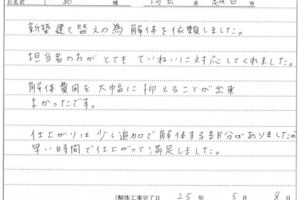 新築建て替えの為解体を依頼しました。
担当者の方がとてもていねいに対応してくれました。
解体費用を大幅に抑えることが出来
よかったです。
仕上がりは少し追加で解体する部分がありましたが
早い時間で仕上がって満足しました。
(解体工事完了日 25年 5月 8日